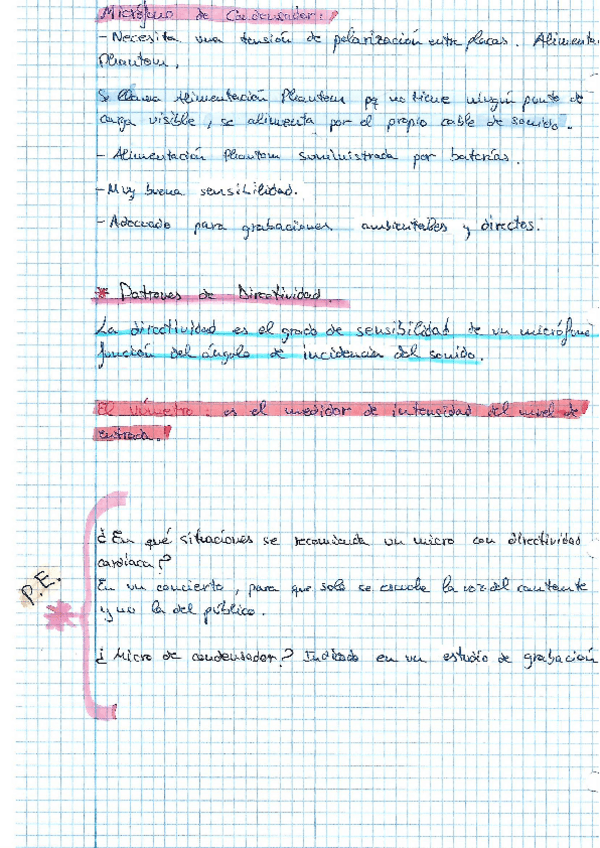 Micrófono de Condensador:
- Necesita una tensión de polarización entre placas. Alimenta
Phantom.
Se llama Alimentación Phantom pq no tiene ningún punto de
carga visible, se alimenta por el propio cable de sonido.
- Alimentación Phantom suministrada por baterías.
- Muy buena sensibilidad.
- Adecuado para grabaciones ambientales y directos.
* Patrones de Directividad.
La directividad es el grado de sensibilidad de un micrófono
función del ángulo de incidencia del sonido.
El Vúmetro: es el medidor de intensidad del nivel de
entrada.
¿En qué situaciones se recomienda un micro con directividad
cardíaca?
En un concierto, para que solo se escuche la voz del cantante
y no la del público.
P.E.
*
¿Micro de condensador? Indicado en un estudio de grabación